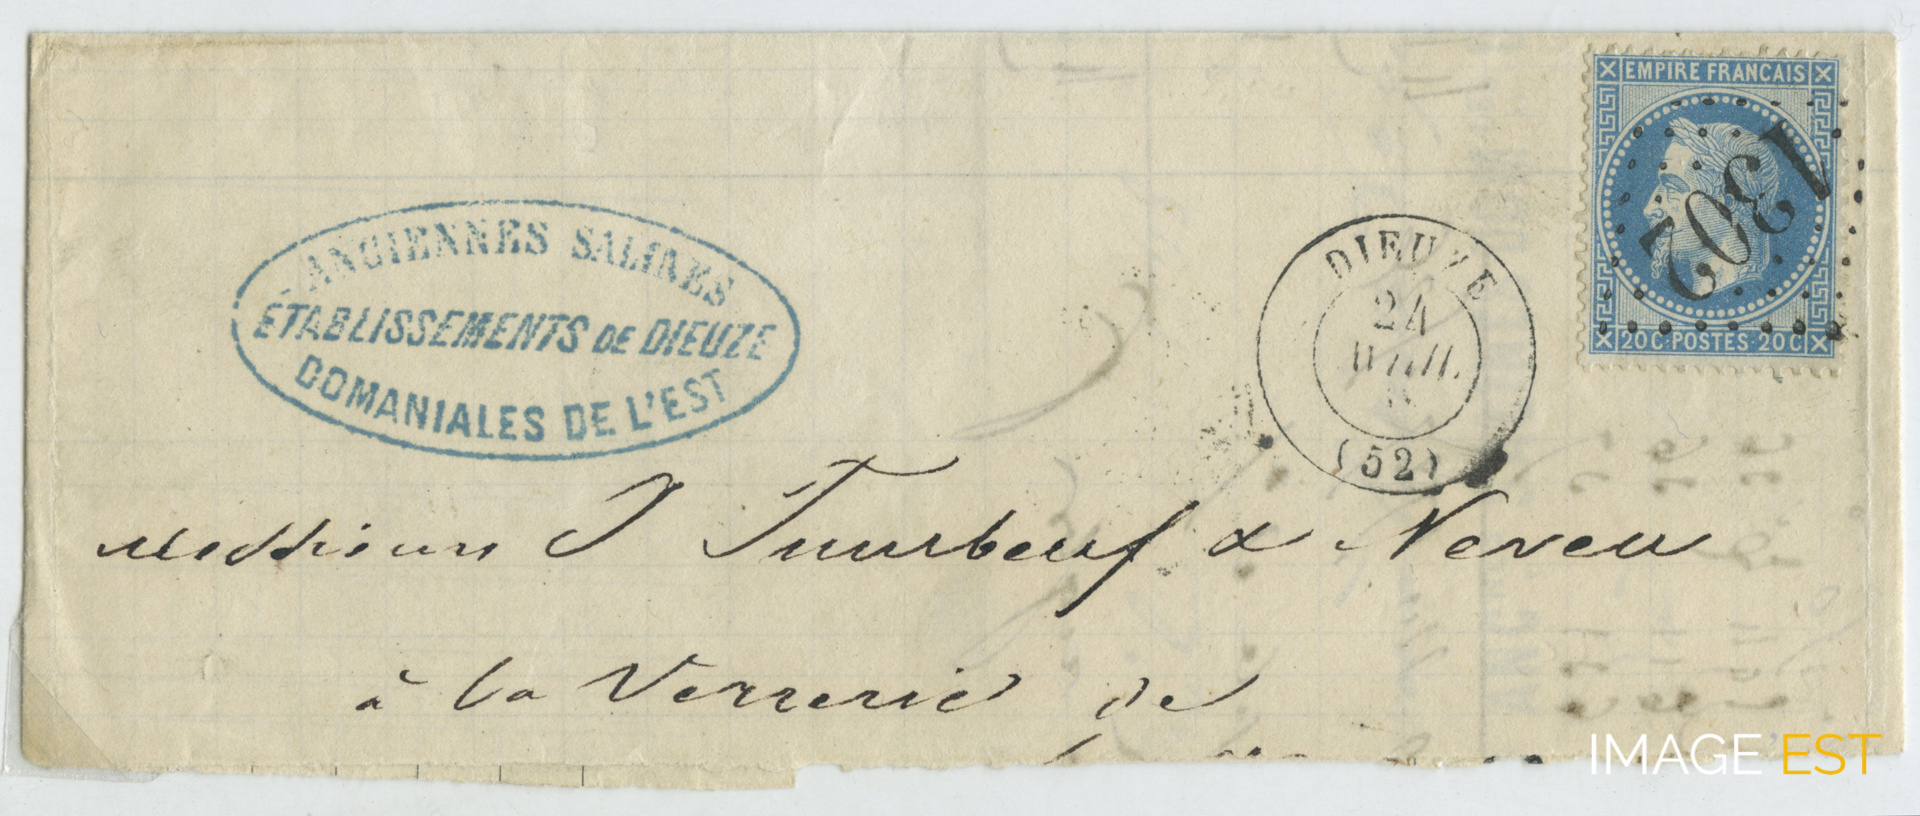 EMPIRE FRANCAIS
1302
20C·POSTES·20C
ANCIENNES SALINES
ÉTABLISSEMENTS DE DIEUZE
DOMANIALES DE L'EST
DIEUZE
24
AVRIL
(52)
Messieurs J Tuurbeuf & Neveu
à la Verrerie de
IMAGE EST